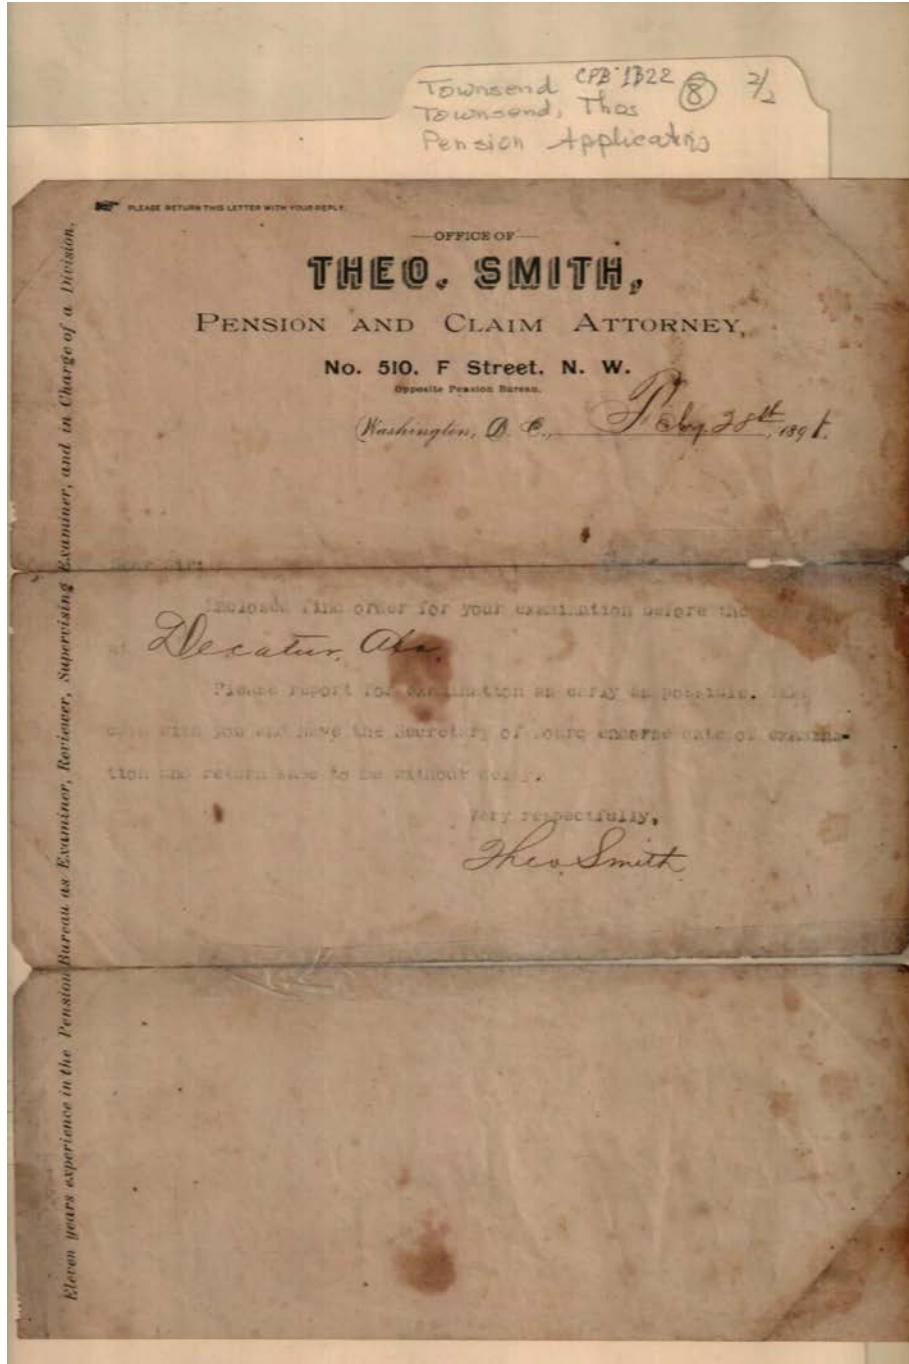 Townsend CPB 1B22 8 2/2
Townsend, Thos
Pension Applicatins
PLEASE RETURN THIS LETTER WITH YOUR REPLY.
OFFICE OF
THEO. SMITH,
PENSION AND CLAIM ATTORNEY,
No. 510. F Street. N. W.
Opposite Pension Bureau.
Washington, D. C., Feby 28th, 189
Dear Sir:
Enclosed find order for your examination before the
at Decatur, Ala.
Please report for examination as early as possible. Take
with you and have the Secretary of Board endorse date of examina-
tion and return same to me without delay.
Very respectfully,
Theo. Smith
Eleven years experience in the Pension Bureau as Examiner, Reviewer, Supervising Examiner, and in Charge of a Division.